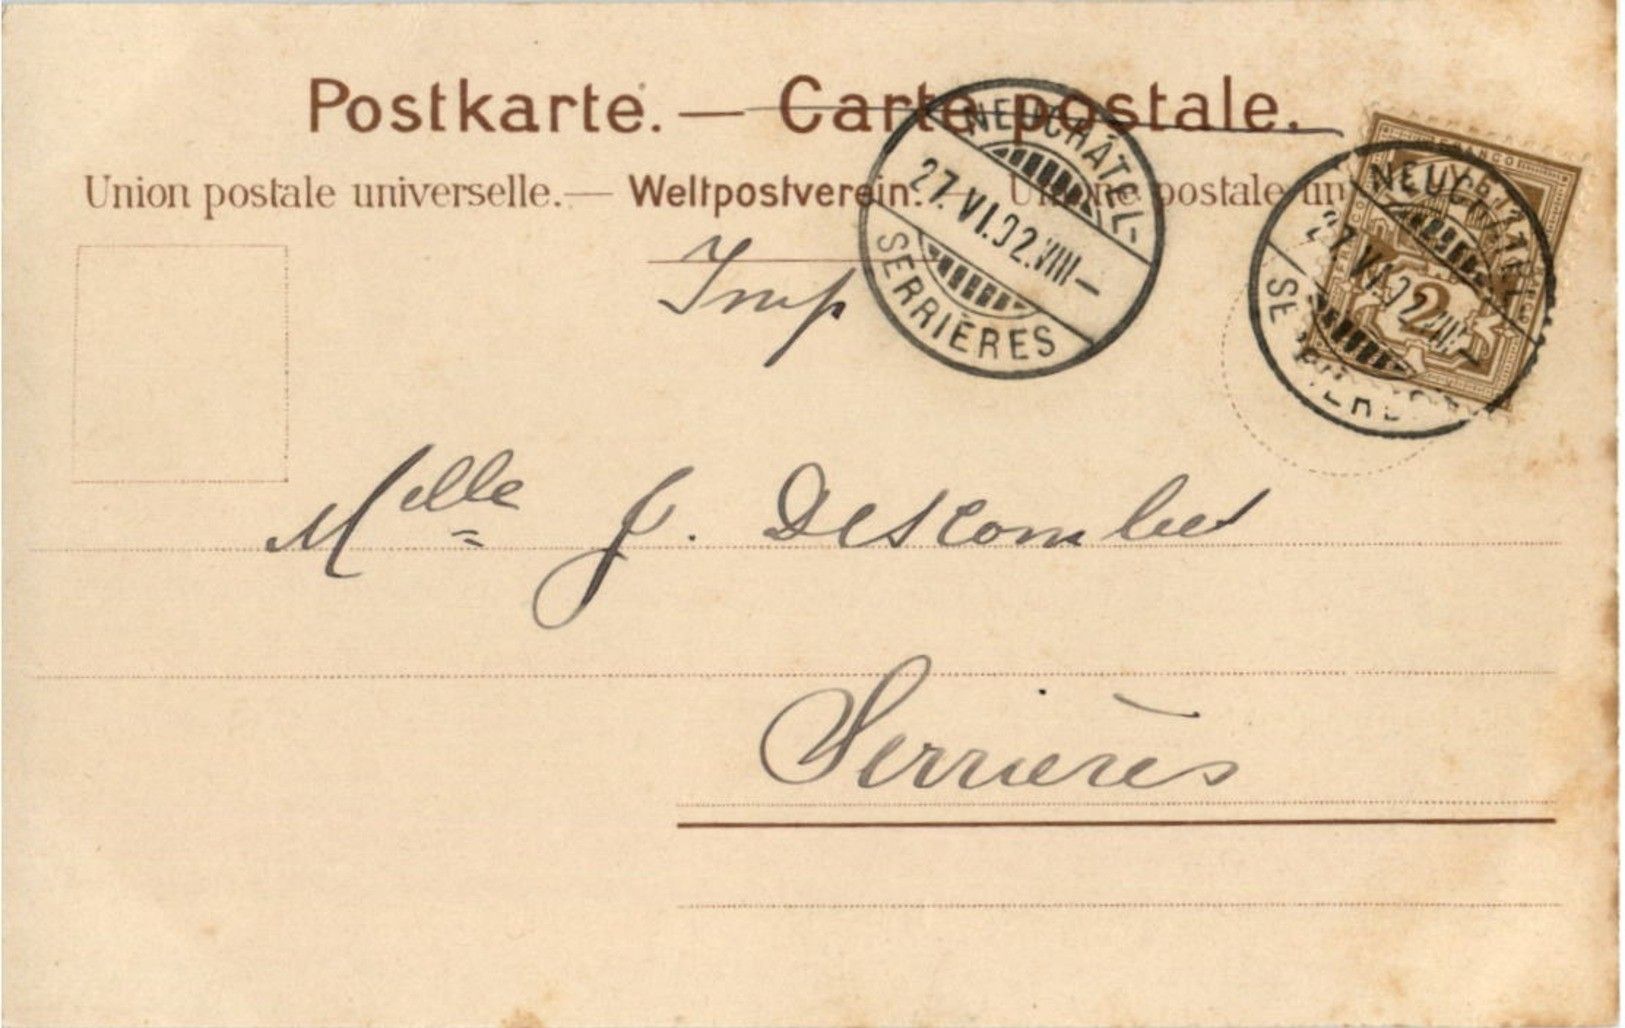 Postkarte. — Carte postale.
Union postale universelle. — Weltpostverein. — postale un
NEUCHÂTEL-
27.VI.02.VIII—
SERRIÈRES
FRANCO
2
NEUCHÂTEL
27.VI.02.VIII—
Imp
Melle J. Descombes
Serrières